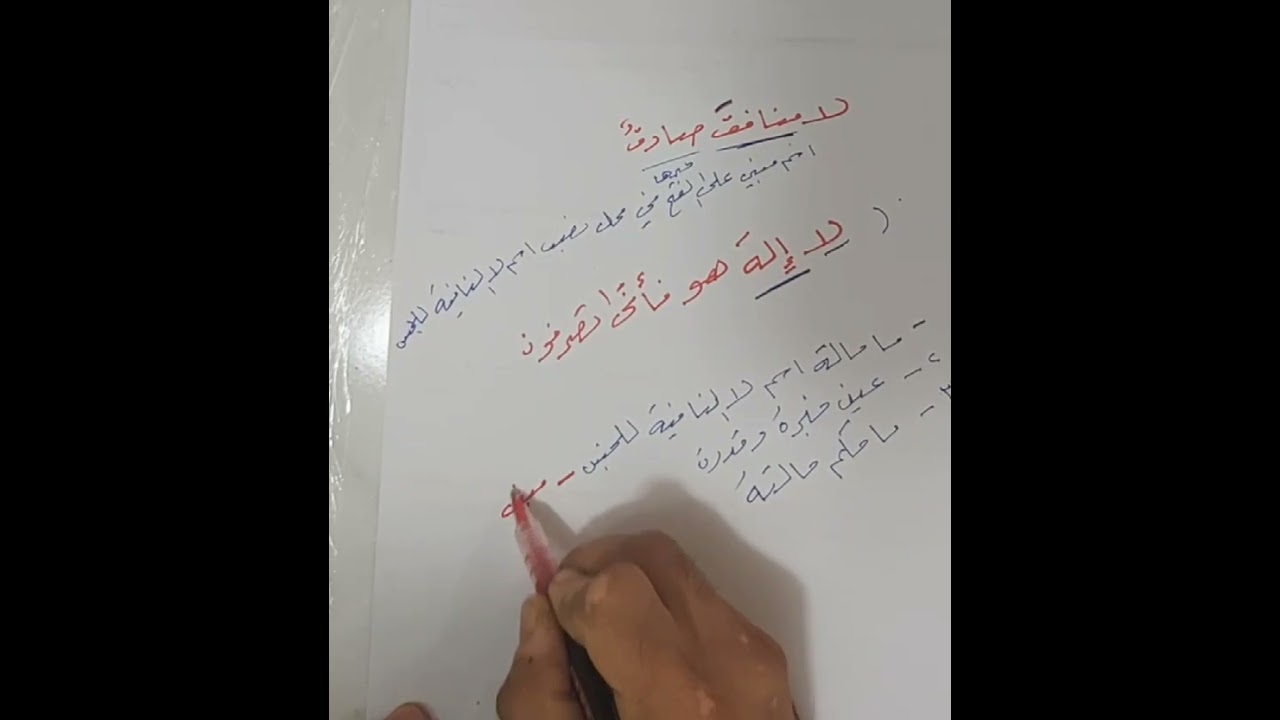 لا منافقَ صادقٌ
خبرها
اسم مبني على الفتح في محل نصب اسم لا النافية للجنس
( لا إلهَ هو فأنّى تصرفون
- ما حالة اسم لا النافية للجنس - مبني
٢- عين خبره وقدره
٣- ما حكم حالته